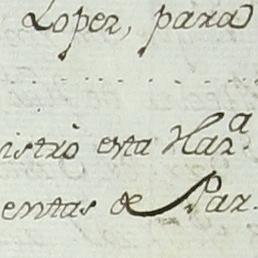 Lopez, para
istrò esta Haz.ª
entas de Par.